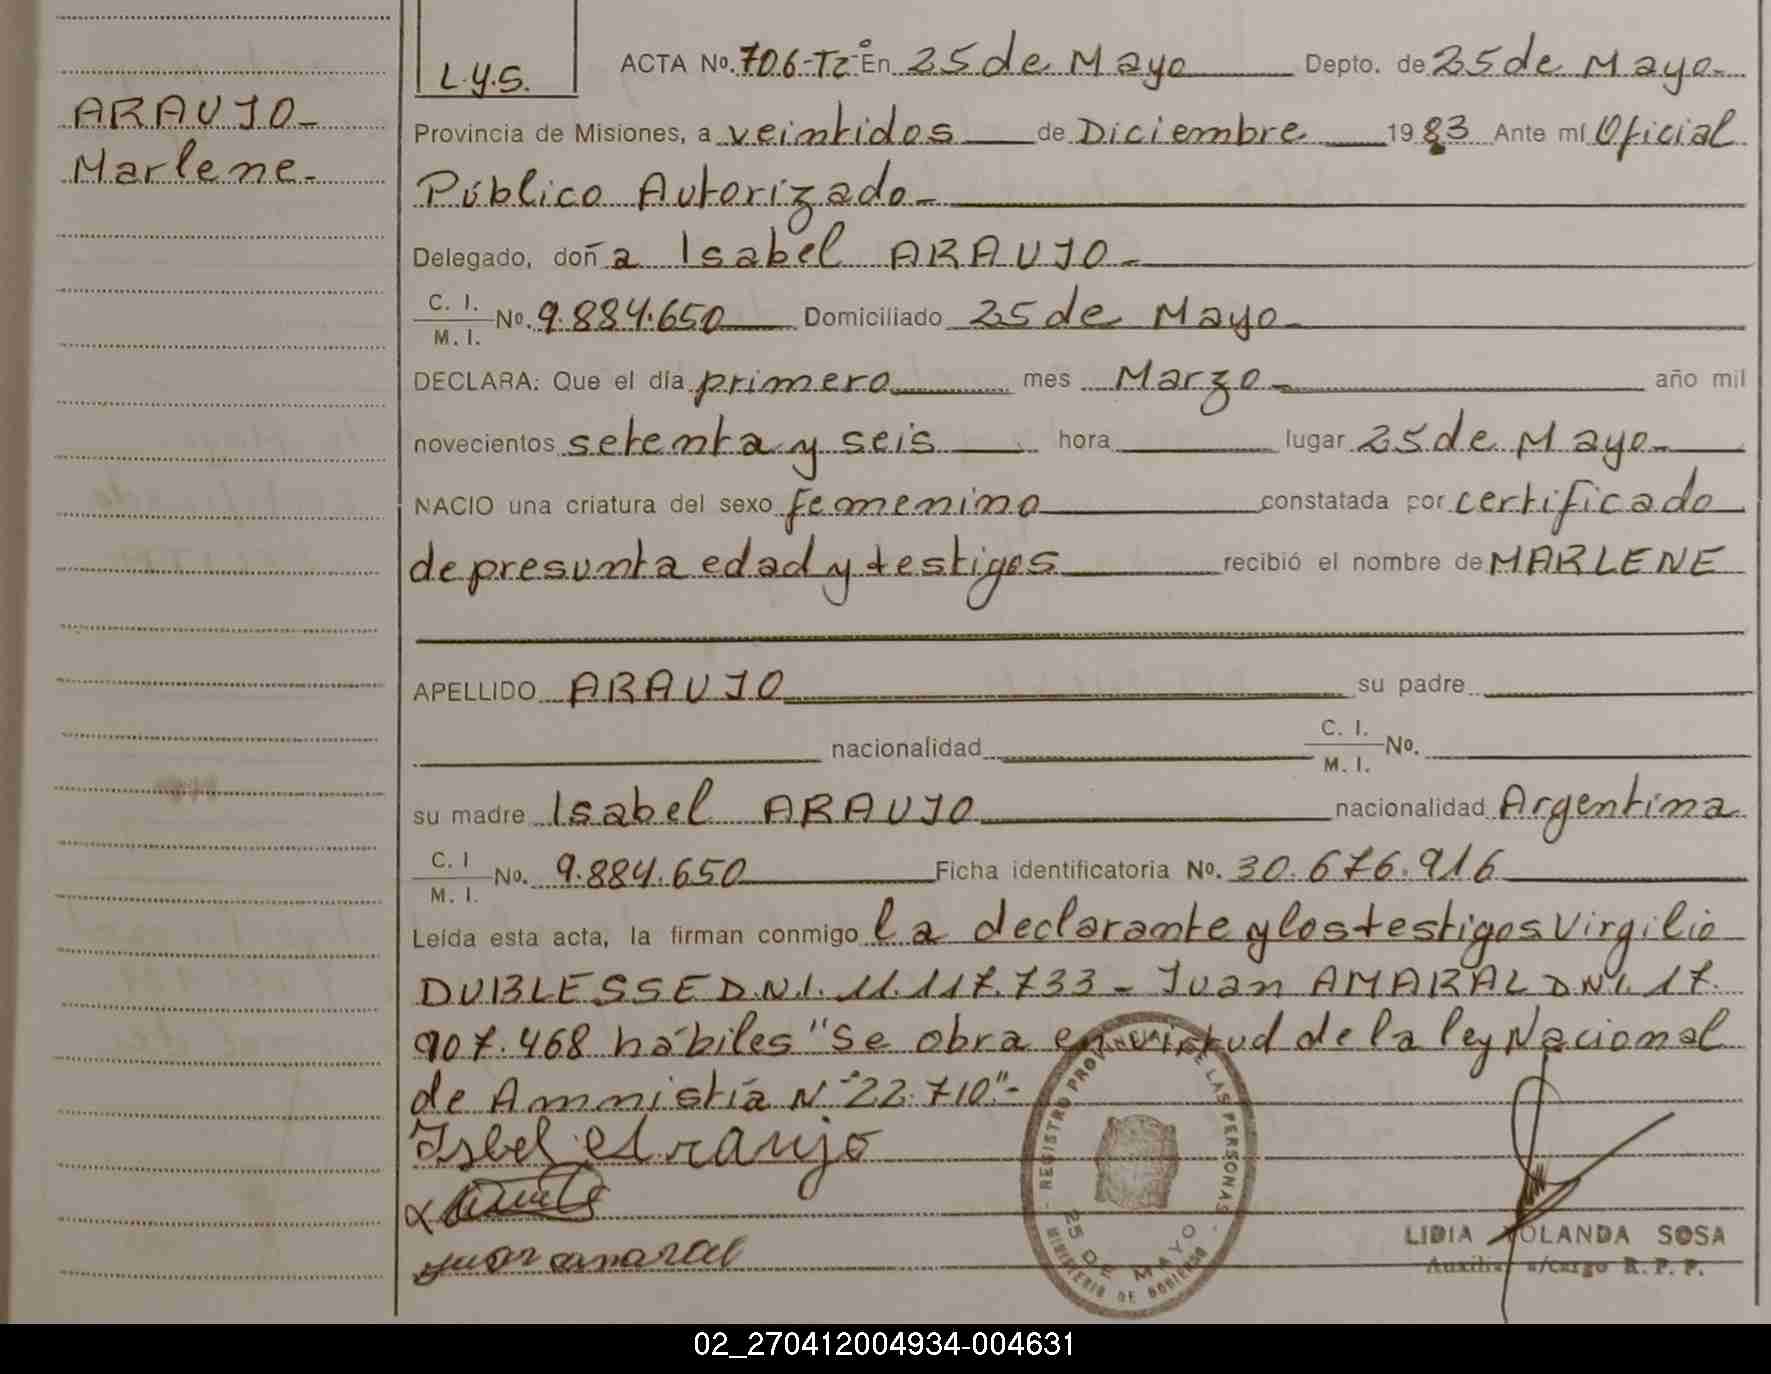 L.y.S.
ACTA No. 706-Tº2º En 25 de Mayo Depto. de 25 de Mayo-
ARAUJO-
Marlene-
Provincia de Misiones, a veintidos de Diciembre 1983 Ante mí Oficial
Público Autorizado-
Delegado, doña Isabel ARAUJO-
C. I.
M. I. No. 9.884.650 Domiciliado 25 de Mayo-
DECLARA: Que el día primero mes Marzo- año mil
novecientos setenta y seis hora lugar 25 de Mayo-
NACIO una criatura del sexo femenino constatada por certificado
de presunta edad y testigos recibió el nombre de MARLENE
APELLIDO ARAUJO su padre
nacionalidad C. I.
M. I. No.
su madre Isabel ARAUJO nacionalidad Argentina
C. I
M. I. No. 9.884.650 Ficha identificatoria No. 30.676.916
Leída esta acta, la firman conmigo la declarante y los testigos Virgilio
DUBLESSE D.N.I. 11.117.733 - Juan AMARAL D.N.I. 17.
907.468 hábiles "Se obra en virtud de la ley Nacional
de Ammistía Nº 22.710"-
Isbel Araujo
juan amaral
REGISTRO PROVINCIAL DE LAS PERSONAS
25 DE MAYO
MINISTERIO DE GOBIERNO
LIDIA YOLANDA SOSA
Auxiliar a/cargo R. P. P.
02_270412004934-004631